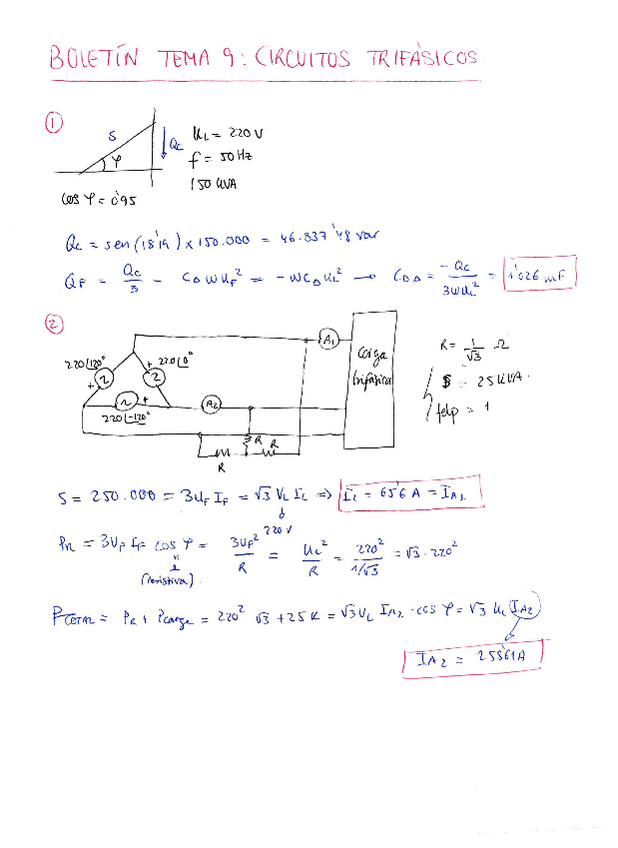 BOLETÍN TEMA 9: CIRCUITOS TRIFÁSICOS
1
S
φ
Qc
UL = 220 V
f = 50 Hz
150 kVA
cos φ = 0'95
Qc = sen(18'19) × 150.000 = 46.837'48 var
QF = Qc/3 - C△ωUF² = -ωC△UL² → C△△ = -Qc/3ωUL² = 1'026 mF
2
220|120°
+
220|0°
+
220|-120°
+
A1
A2
Carga
trifásica
R
R
R
R = 1/√3 Ω
S = 25 KVA.
fdp = 1
S = 250.000 = 3UF IF = √3 VL IL ⇒ IL = 65'6 A = IA1
220 V
PR = 3UF IF cos φ = 3UF²/R = UL²/R = 220²/1/√3 = √3 · 220²
1
(resistiva)
PTOTAL = PR + Pcarga = 220² √3 + 25 K = √3 UL IA2 · cos φ = √3 UL IA2
IA2 = 285'61 A